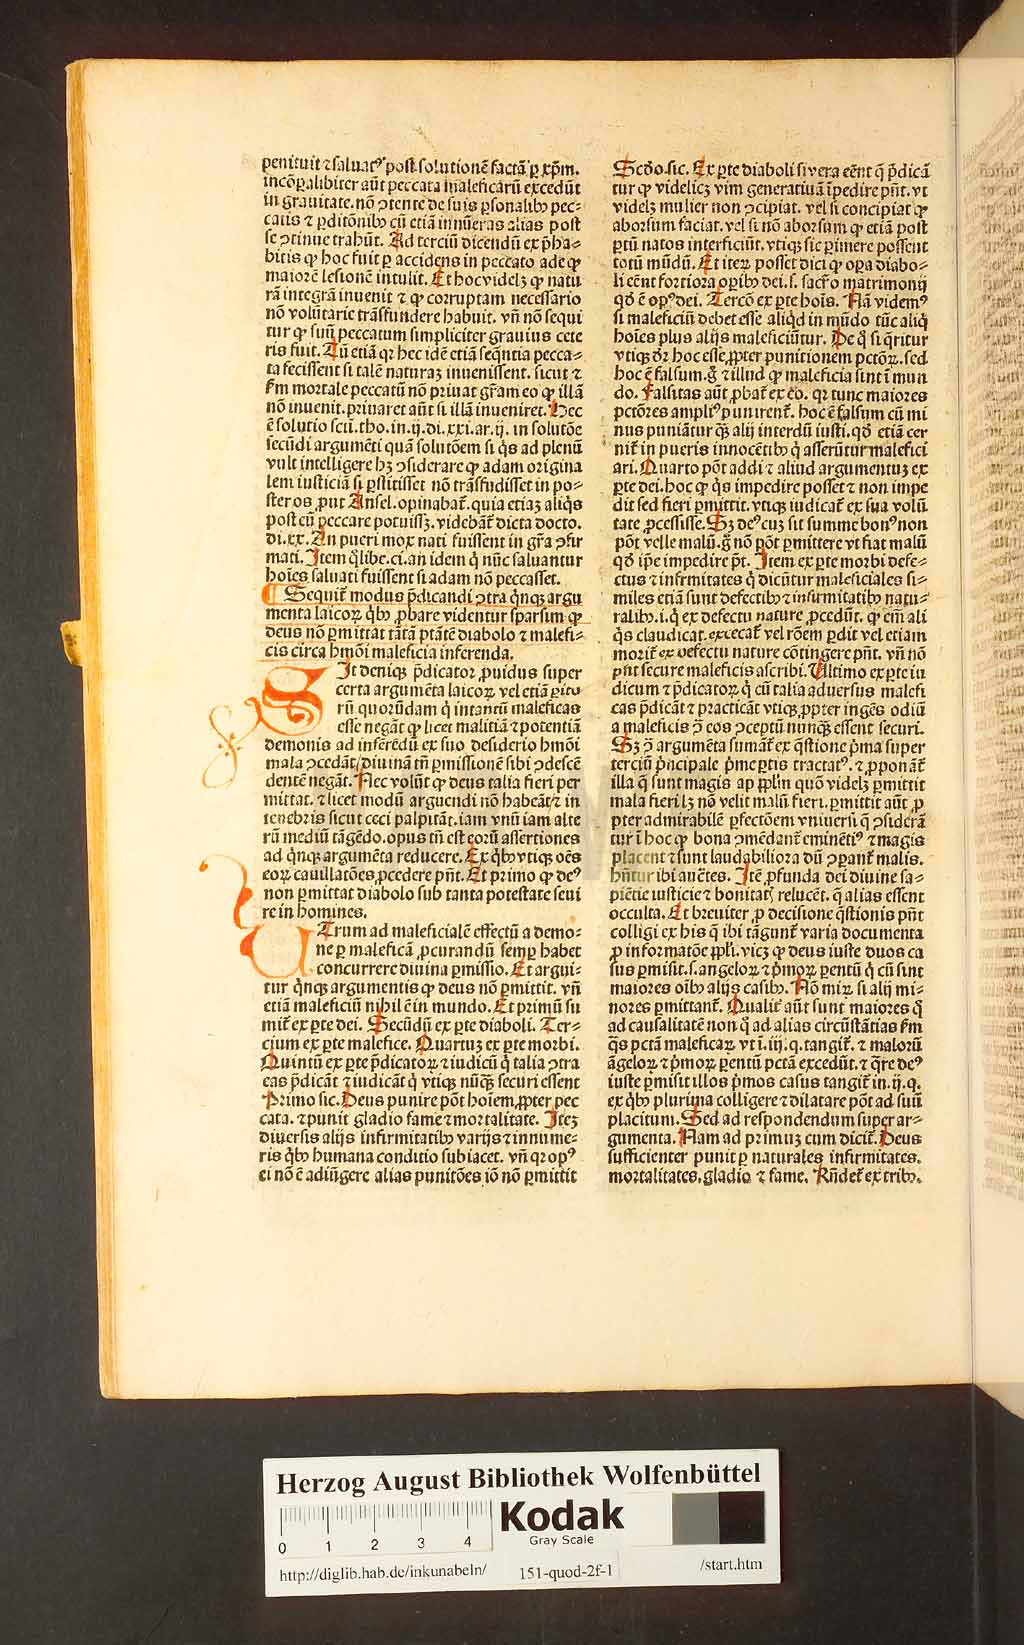 penituit ⁊ saluatꝰ post solutionē factā ꝑ xp̄m.
incōꝑalibiter aūt peccata maleficarū excedūt
in grauitate. nō ↄtente de suis ꝑsonalibꝫ pec-
catis ⁊ ꝑditōnibꝫ cū etiā innūeras alias post
se ↄtinue trahūt. Ad terciū dicendū ex p̄ha-
bitis ꝙ hoc fuit ꝑ accidens in peccato ade ꝙ
maiorē lesionē intulit. Et hoc videlꝫ ꝙ natu
rā integrā inuenit ⁊ ꝙ corruptam necessario
nō volūtarie trāsfundere habuit. vn̄ nō sequi
tur ꝙ suū peccatum simpliciter grauius cete
ris fuit. Tū etiā qꝛ hec idē etiā seq̄ntia pecca-
ta fecissent si talē naturaꝫ inuenissent. sicut ⁊
fm mortale peccatū nō priuat gr̄am eo ꝙ illā
nō inuenit. priuaret aūt si illā inueniret. Hec
ē solutio scti. tho. in. ij. di. xxi. ar. ij. in solutōe
secūdi argumēti quā solutōem si q̄s ad plenū
vult intelligere hꝫ ↄsiderare ꝙ adam origina
lem iusticiā si ꝑstitisset nō trāsfudisset in po-
steros ꝓut Ansel. opinabat̄. quia etiaꝫ aliq̄s
post eū peccare potuissꝫ. videbāt̄ dicta docto.
di. xx. An pueri mox nati fuissent in gr̄a ↄfir
mati. Item q̄libe. ci. an idem q̄ nūc saluantur
hoīes saluati fuissent si adam nō peccasset.
¶ Sequit̄ modus p̄dicandi ↄtra q̄nqꝫ argu
menta laicoꝝ q̄bꝫ ꝓbare videntur sparsim ꝙ
deus nō ꝑmittat tātā ptātē diabolo ⁊ malefi-
cis circa hmōi maleficia inferenda.
SIt deniqꝫ p̄dicator ꝓuidus super
certa argumēta laicoꝝ vel etiā ꝑito
rū quorūdam q̄ intantū maleficas
esse negāt ꝙ licet malitiā ⁊ potentiā
demonis ad inferēdū ex suo desiderio hmōi
mala ↄcedāt/ diuinā tn̄ ꝑmissionē sibi ↄdescē
dentē negāt. Nec volūt ꝙ deus talia fieri per
mittat. ⁊ licet modū arguendi nō habeāt/ ⁊ in
tenebris sicut ceci palpitāt. iam vnū iam alte
rū mediū tāgēdo. opus tn̄ est eorū assertiones
ad q̄nqꝫ argumēta reducere. Ex q̄bꝫ vtiqꝫ oēs
eoꝝ cauillatōes ꝓcedere pn̄t. Et primo ꝙ deꝰ
non ꝑmittat diabolo sub tanta potestate seui
re in homines.
UTrum ad maleficialē effectū a demo-
ne ꝑ maleficā ꝓcurandū semꝑ habet
concurrere diuina ꝑmissio. Et argui-
tur q̄nqꝫ argumentis ꝙ deus nō ꝑmittit. vn̄
etiā maleficiū nihil ē in mundo. Et primū su
mit̄ ex ꝑte dei. Secūdū ex ꝑte diaboli. Ter-
cium ex ꝑte malefice. Quartuꝫ ex ꝑte morbi.
Quintū ex ꝑte p̄dicatoꝝ ⁊ iudicū q̄ talia ↄtra
eas p̄dicāt ⁊ iudicāt q̄ vtiqꝫ nūqꝫ̄ securi essent
Primo sic. Deus punire pōt hoīem ꝓpter pec
cata. ⁊ punit gladio fame ⁊ mortalitate. Iteꝫ
diuersis alijs infirmitatibꝫ varijs ⁊ innume-
ris q̄bꝫ humana conditio subiacet. vn̄ qꝛ opꝰ
ei nō ē adiūgere alias punitōes iō nō ꝑmittit
Scd̄o. sic. Ex ꝑte diaboli si vera eēnt q̄ p̄dicā
tur ꝙ videlicꝫ vim generatiuā īpedire pn̄t. vt
videlꝫ mulier non ↄcipiat. vel si concipiat ꝙ
aborsum faciat. vel si nō aborsum ꝙ etiā post
ꝑtū natos interficiūt. vtiqꝫ sic ꝑimere possent
totū mūdū. Et iteꝝ posset dici ꝙ oꝑa diabo-
li eēnt fortiora oꝑibꝫ dei. s. sacr̄o matrimonij
qd̄ ē opꝰ dei. Tercō ex ꝑte hoīs. Nā videmꝰ
si maleficiū debet esse aliqd̄ in mūdo tūc aliq̄
hoīes plus alijs maleficiūtur. De q̄ si q̄ritur
vtiqꝫ dr̄ hoc esse ꝓpter punitionem pctōꝝ. sed
hoc ē falsum. g̊ ⁊ illud ꝙ maleficia sint ī mun
do. Falsitas aūt ꝓbat̄ ex eo. qꝛ tunc maiores
pctōres ampliꝰ punirent̄. hoc ē falsum cū mi
nus puniātur qꝫ̄ alij interdū iusti. qd̄ etiā cer
nit̄ in pueris innocētibꝫ q̄ asserūtur malefici
ari. Quarto pōt addi ⁊ aliud argumentuꝫ ex
ꝑte dei. hoc ꝙ q̄s impedire posset ⁊ non impe
dit sed fieri ꝑmittit. vtiqꝫ iudicat̄ ex sua volū
tate ꝓcessisse. Sꝫ deꝰ cuꝫ sit summe bonꝰ non
pōt velle malū. g̊ nō pōt ꝑmittere vt fiat malū
qd̄ ip̄e impedire pōt. Item ex ꝑte morbi defe-
ctus ⁊ infirmitates q̄ dicūtur maleficiales si-
miles etiā sunt defectibꝫ ⁊ infirmitatibꝫ natu-
ralibꝫ. i. q̄ ex defectu nature ꝓcedūt. ꝙ em̄ ali
q̄s claudicat. excecat̄ vel rōem ꝑdit vel etiam
morit̄ ex defectu nature cōtingere pn̄t. vn̄ nō
pn̄t secure maleficis ascribi. Ultimo ex ꝑte iu
dicum ⁊ p̄dicatoꝝ q̄ cū talia aduersus malefi
cas p̄dicāt ⁊ practicāt vtiqꝫ ꝓpter ingēs odiū
a maleficis ↄ̄ eos ↄceptū nunqꝫ̄ essent securi.
Sꝫ ↄ̄ argumēta sumāt̄ ex q̄stione p̄ma super
terciū p̄ncipale p̄me ꝑtis tractatꝰ. ⁊ ꝓponāt̄
illa q̄ sunt magis ap pp̄lm quō videlꝫ ꝑmittit
mala fieri lꝫ nō velit malū fieri. ꝑmittit aūt ꝓ
pter admirabilē ꝑfectōem vniuersi q̄ ↄsiderā
tur ī hoc ꝙ bona ↄmēdant̄ eminētiꝰ ⁊ magis
placent ⁊ sunt laudabiliora dū ↄꝑant̄ malis.
hn̄tur ibi auctes. Itē ꝓfunda dei diuine sa-
piētie iusticie ⁊ bonitatꝭ relucēt. q̄ alias essent
occulta. Et breuiter ꝓ decisione q̄stionis pn̄t
colligi ex his q̄ ibi tāgunt̄ varia documenta
ꝓ informatōe pp̄li. vicꝫ ꝙ deus iuste duos ca
sus ꝑmisit. s. angeloꝝ ⁊ p̄moꝝ ꝑentū q̄ cū sint
maiores oībꝫ alijs casibꝫ. Nō miꝝ si alij mi-
nores ꝑmittant̄. Qualit̄ aūt sunt maiores q̄
ad causalitatē non q̄ ad alias circūstātias fm
q̄s pctā maleficaꝝ vt ī. iij. q. tangit̄. ⁊ malorū
āgeloꝝ ⁊ p̄moꝝ ꝑentū pctā excedūt. ⁊ q̄re deꝰ
iuste ꝑmisit illos p̄mos casus tangit̄ in. ij. q.
ex q̄bꝫ plurima colligere ⁊ dilatare pōt ad suū
placitum. Sed ad respondendum super ar-
gumenta. Nam ad primuꝫ cum dicit̄. Deus
sufficienter punit ꝑ naturales infirmitates.
mortalitates. gladio ⁊ fame. Rn̄det̄ ex tribꝫ.
Herzog August Bibliothek Wolfenbüttel
0 1 2 3 4
Kodak
Gray Scale
http://diglib.hab.de/inkunabeln/ 151-quod-2f-1 /start.htm